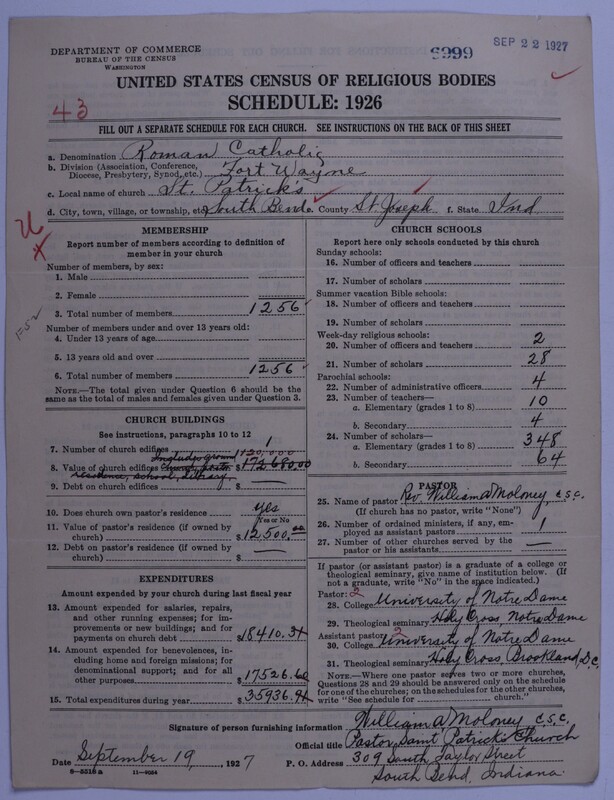 DEPARTMENT OF COMMERCE
BUREAU OF THE CENSUS
WASHINGTON
6999
SEP 22 1927
UNITED STATES CENSUS OF RELIGIOUS BODIES
SCHEDULE: 1926
43
FILL OUT A SEPARATE SCHEDULE FOR EACH CHURCH. SEE INSTRUCTIONS ON THE BACK OF THIS SHEET
a. Denomination Roman Catholic
b. Division (Association, Conference, Diocese, Presbytery, Synod, etc.) Fort Wayne
c. Local name of church St. Patrick's
d. City, town, village, or township, etc. South Bend e. County St. Joseph f. State Ind
MEMBERSHIP
Report number of members according to definition of
member in your church
Number of members, by sex:
1. Male
2. Female
3. Total number of members 1256
Number of members under and over 13 years old:
4. Under 13 years of age
5. 13 years old and over
6. Total number of members 1256
NOTE.—The total given under Question 6 should be
the same as the total of males and females given under Question 3.
CHURCH BUILDINGS
See instructions, paragraphs 10 to 12
7. Number of church edifices 1
Includes ground 120,000
8. Value of church edifices church, pastor $172680.00
residence, school, library
9. Debt on church edifices $ —
10. Does church own pastor's residence yes
Yes or No
11. Value of pastor's residence (if owned by
church) $12500.00
12. Debt on pastor's residence (if owned by
church) $ —
EXPENDITURES
Amount expended by your church during last fiscal year
13. Amount expended for salaries, repairs,
and other running expenses; for im-
provements or new buildings; and for
payments on church debt $18410.34
14. Amount expended for benevolences, in-
cluding home and foreign missions; for
denominational support; and for all
other purposes 17526.60
15. Total expenditures during year $35936.94
CHURCH SCHOOLS
Report here only schools conducted by this church
Sunday schools:
16. Number of officers and teachers
17. Number of scholars
Summer vacation Bible schools:
18. Number of officers and teachers
19. Number of scholars
Week-day religious schools:
20. Number of officers and teachers 2
21. Number of scholars 28
Parochial schools:
22. Number of administrative officers 4
23. Number of teachers—
a. Elementary (grades 1 to 8) 10
b. Secondary 4
24. Number of scholars—
a. Elementary (grades 1 to 8) 348
b. Secondary 64
PASTOR
25. Name of pastor Rev. William A Moloney, C.S.C.
(If church has no pastor, write "None")
26. Number of ordained ministers, if any, em-
ployed as assistant pastors 1
27. Number of other churches served by the
pastor or his assistants —
If pastor (or assistant pastor) is a graduate of a college or
theological seminary, give name of institution below. (If
not a graduate, write "No" in the space indicated.)
Pastor: 2
28. College University of Notre Dame
29. Theological seminary Holy Cross, Notre Dame
Assistant pastor: 2
30. College University of Notre Dame
31. Theological seminary Holy Cross, Brookland, D.C.
NOTE.—Where one pastor serves two or more churches,
Questions 28 and 29 should be answered only on the schedule
for one of the churches; on the schedules for the other churches,
write "See schedule for church."
Signature of person furnishing information William A Moloney C.S.C.
Official title Pastor, Saint Patrick's Church
Date September 19, 1927 P. O. Address 309 South Taylor Street
8—5518 a 11—9054
South Bend, Indiana